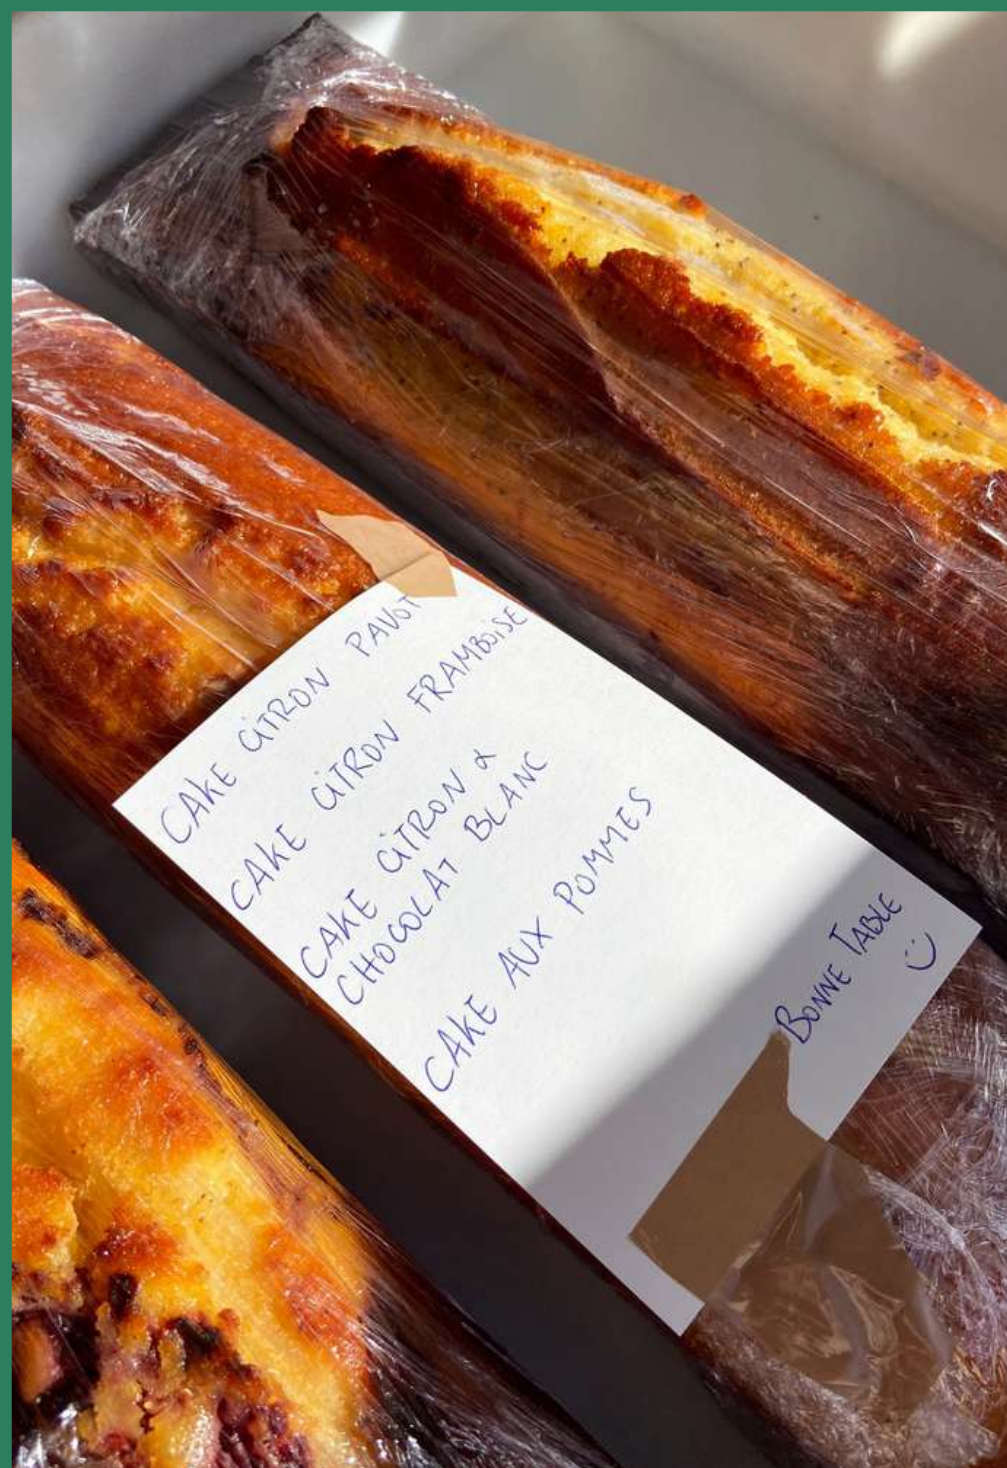 CAKE CITRON PAVOT
CAKE CITRON FRAMBOISE
CAKE CITRON &
CHOCOLAT BLANC
CAKE AUX POMMES
BONNE TABLE